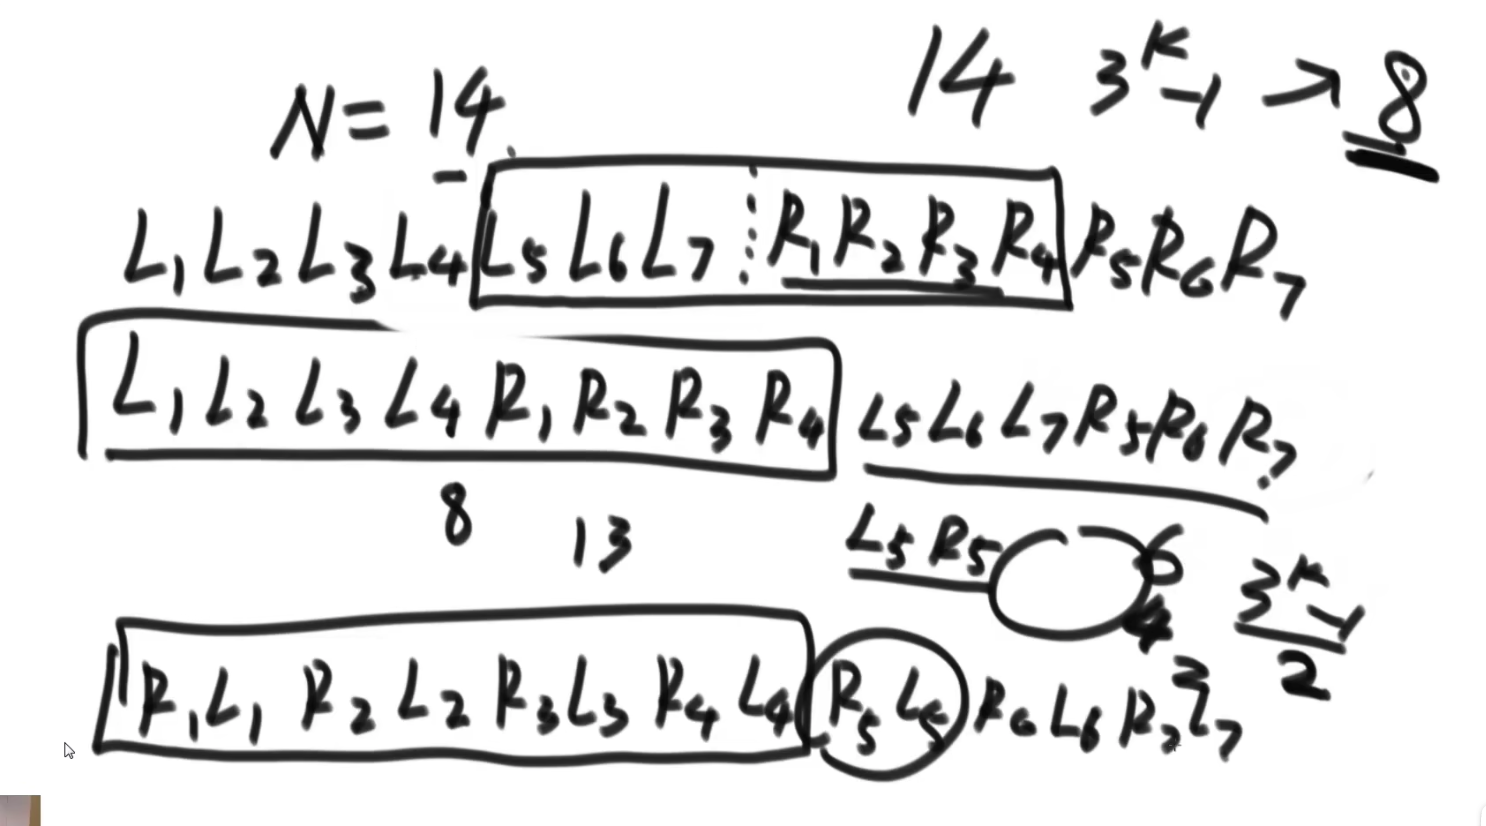 N = 14
14 3^k-1 → 8
L1 L2 L3 L4 L5 L6 L7 R1 R2 R3 R4 R5 R6 R7
L1 L2 L3 L4 R1 R2 R3 R4 L5 L6 L7 R5 R6 R7
8 13
L5 R5 6
4
3^k-1
2
R1 L1 R2 L2 R3 L3 R4 L4 R5 L5 R6 L6 R7 L7